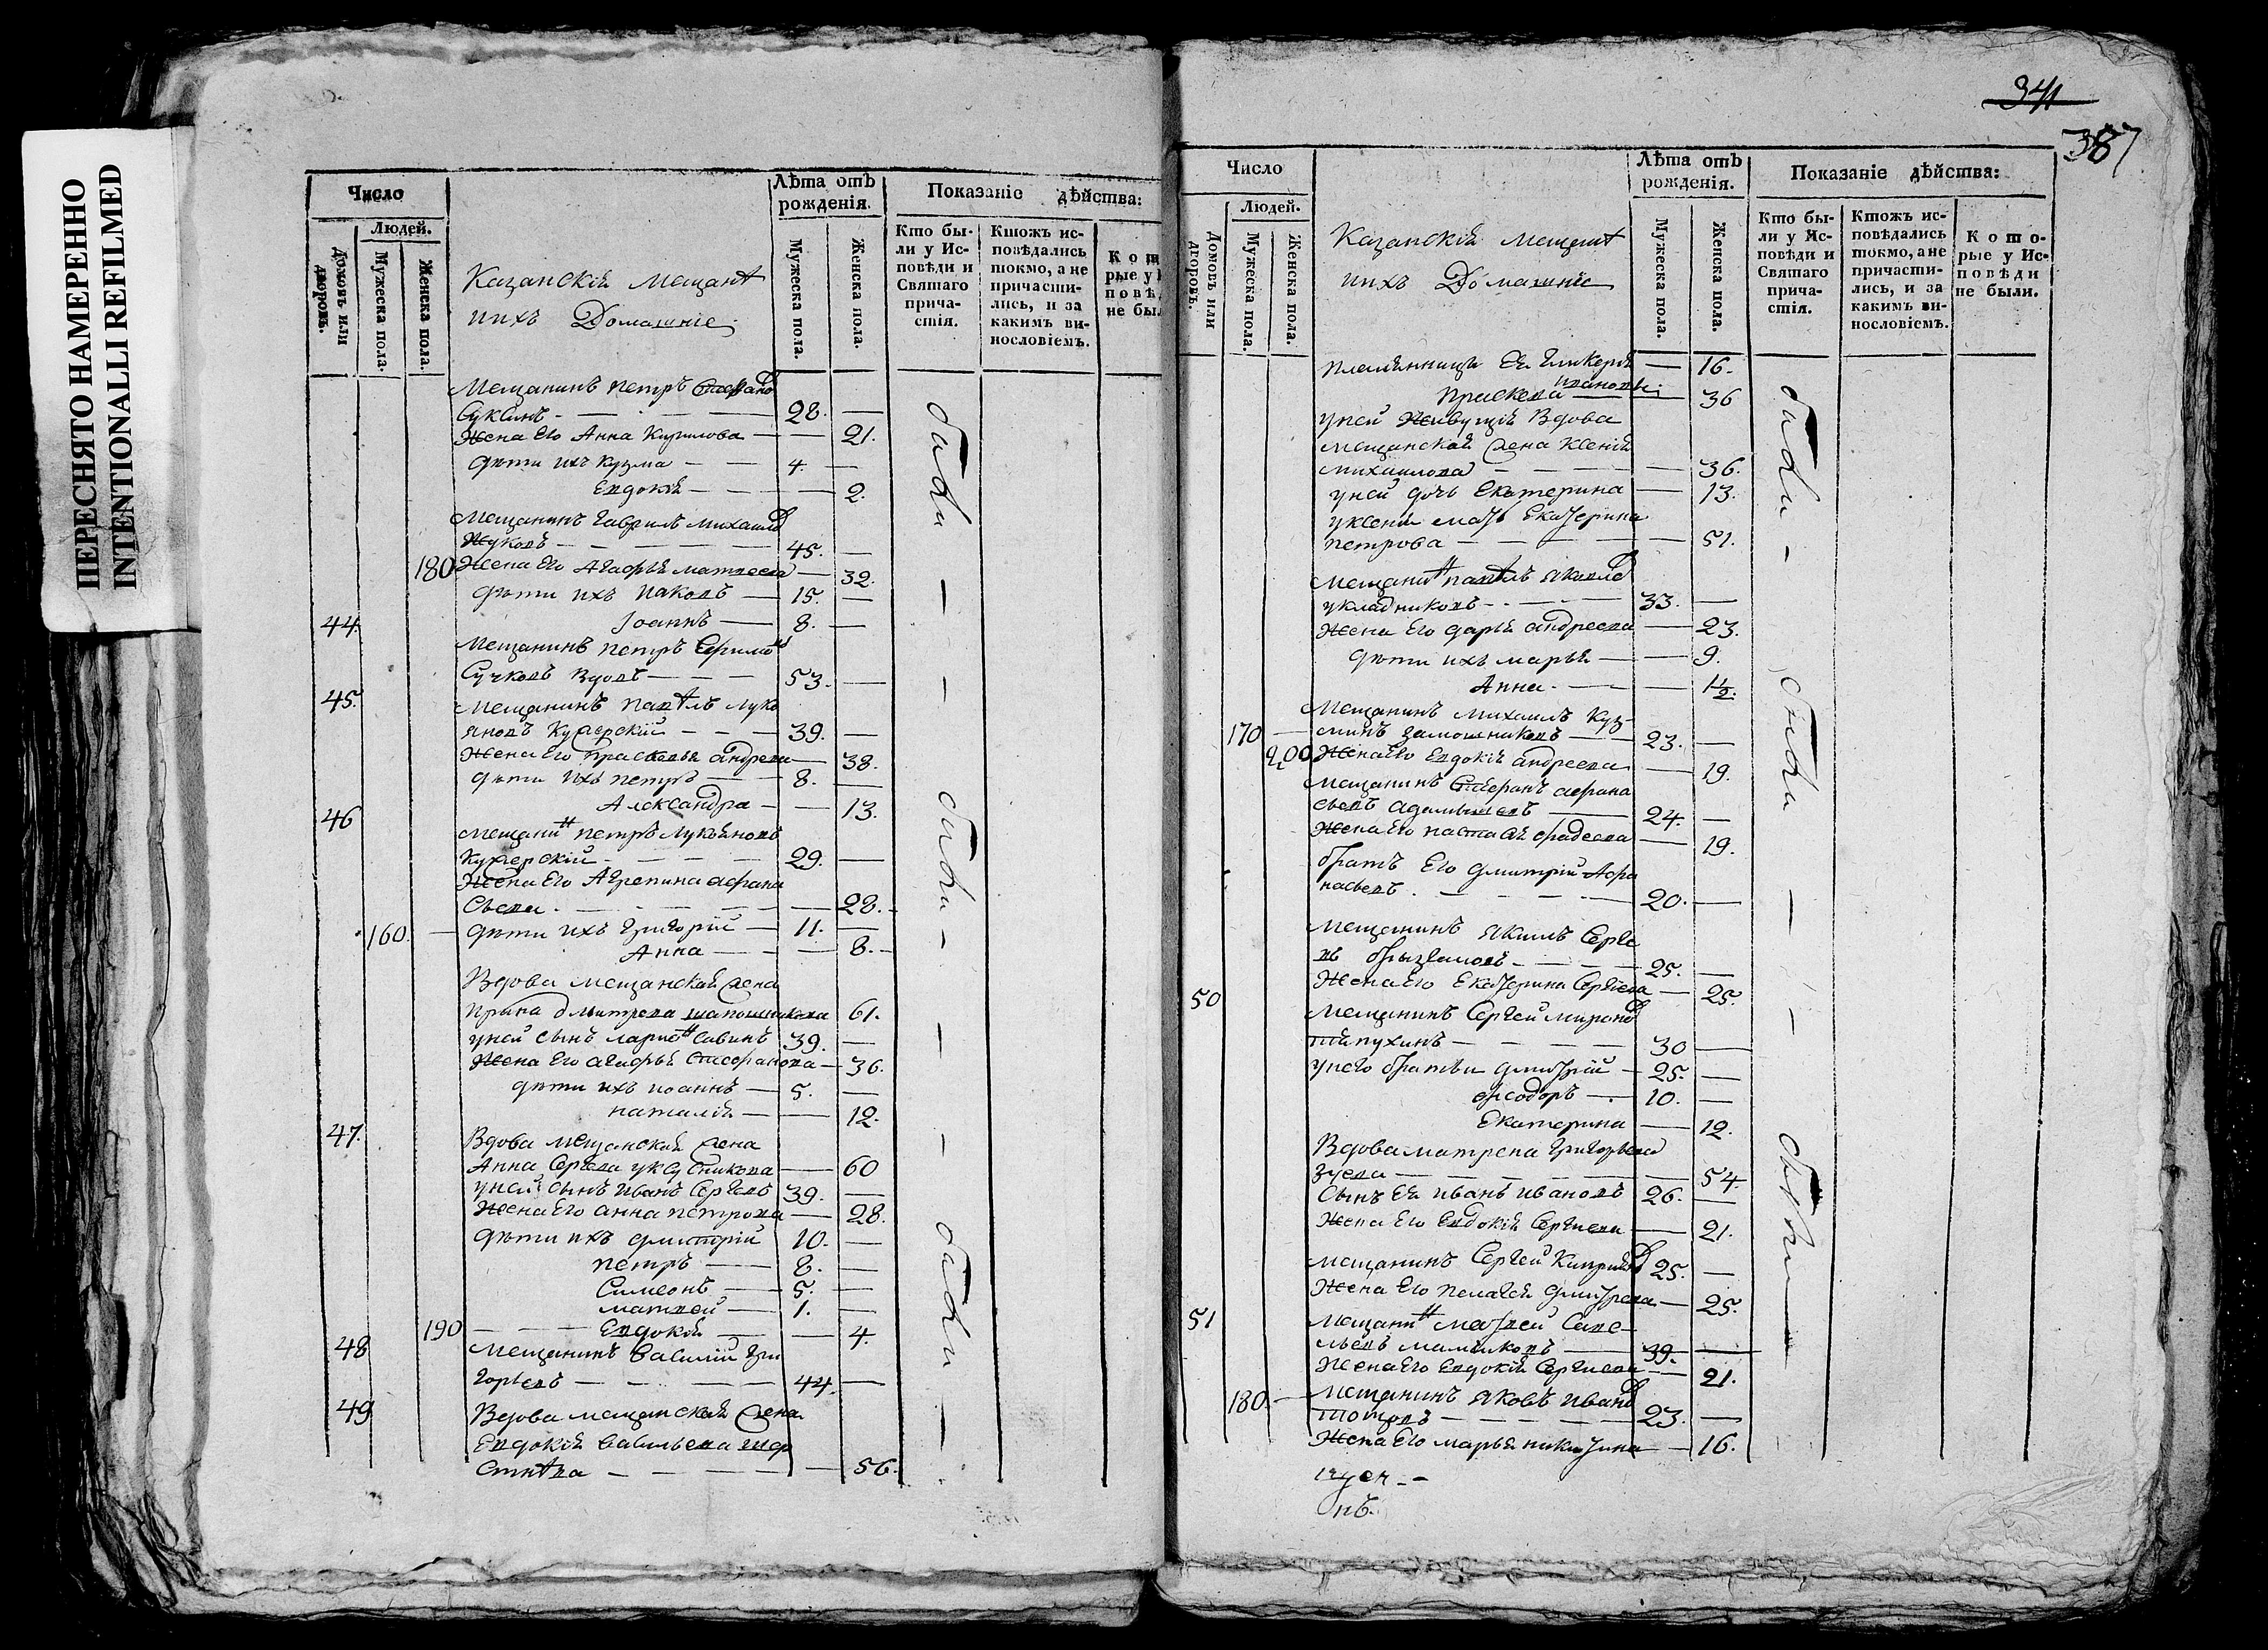 ПЕРЕСНЯТО НАМЕРЕННО
INTENTIONALLI REFILMED
Число
Людей.
Домовъ или дворовъ.
Мужеска пола.
Женска пола.
Казанскія мещаня
иихъ Домашніе
Лѣта отъ рожденія.
Мужеска пола.
Женска пола.
Показаніе дѣйства:
Кто бы-
ли у Ис-
повѣди и
Святаго
прича-
стія.
Ктожъ ис-
повѣдались
токмо, а не
причасти-
лись, и за
какимъ ви-
нословіемъ.
К о т
рые у
п о в ѣ
не был
Мещанинъ петръ
28.
Жена его Анна Кирилова 21.
дѣти ихъ Кузма 4.
Евдокія 2.
Мещанинъ гаврилъ михаило
Жуковъ 45.
180 Жена его Агафья матвеева 32.
дѣти ихъ иаковъ 15.
44. Іоаннъ 8.
Мещанинъ петръ Ефимо
Сучковъ вдовъ 53.
45. мещанинъ павелъ лукь
яновъ 39.
Жена его прасковья андреева 38.
дѣти ихъ петръ 8.
Александра 13.
46 мещанин петръ лукьяновъ
29.
Жена его Агрепина афана
сьева 28.
160. дѣти ихъ григорій 11.
Анна 8.
Вдова мещанская жена
ирина дмитрева шапошникова 61.
уней сынъ ларион савинъ 39.
Жена его агафья стефанова 36.
дѣти ихъ иоаннъ 5.
наталія 12.
47. Вдова мещанская жена
Анна Сергева 60
уней сынъ иванъ Сергевъ 39.
Жена его анна петрова 28.
дѣти ихъ дмитрій 10.
петръ 8.
Симеонъ 5.
матвей 1.
190 Евдокія 4.
48 мещанинъ василій гри
горьевъ 44.
49 Вдова мещанская жена
Евдокія васильева шер
стнева 56.
были
были
были
341
387
Число
Людей.
Домовъ или дворовъ.
Мужеска пола.
Женска пола.
Казанскія мещаня
иихъ Домашніе
Лѣта отъ рожденія.
Мужеска пола.
Женска пола.
Показаніе дѣйства:
Кто бы-
ли у Ис-
повѣди и
Святаго
прича-
стія.
Ктожъ ис-
повѣдались
токмо, а не
причасти-
лись, и за
какимъ ви-
нословіемъ.
К о т о-
рые у Ис-
п о в ѣ д и
не были.
племянницы ея гликерія 16.
ивановы
прасковя 36
уней живущія вдова
мещанская жена Ксенія
михаилова 36.
уней дочь Екатерина 13.
уксеніи мать Екатерина
петрова 51.
мещанин павелъ яковле
укладниковъ 33.
Жена его дарья андреева 23.
дѣти ихъ марья 9.
Анна 1½.
Мещанинъ михаилъ Куз-
170 минъ замошниковъ 23.
200 Жена его Евдокія андреева 19.
мещанинъ Стефанъ афана
сьевъ 24.
Жена его настасья фадеева 19.
братъ его дмитрій Афа
насьевъ 20.
мещанинъ якимъ Серге
въ 25.
50 Жена его Екатерина Сергеева 25.
мещанинъ Сергей мироно
тяпухинъ 30
унего братьи дмитрій 25.
феодоръ 10.
Екатерина 12.
Вдова матрена григорьева
зуева 54.
Сынъ ея иванъ ивановъ 26.
Жена его Евдокія Сергиева 21.
мещанинъ Сергей Киприяно 25.
Жена его пелагея дмитрева 25.
51 мещанин матвей Саве-
льевъ 39.
Жена его Евдокія Сергиева 21.
180. мещанинъ яковъ ивано
23.
Жена его марья никитина 16.
были
были
были